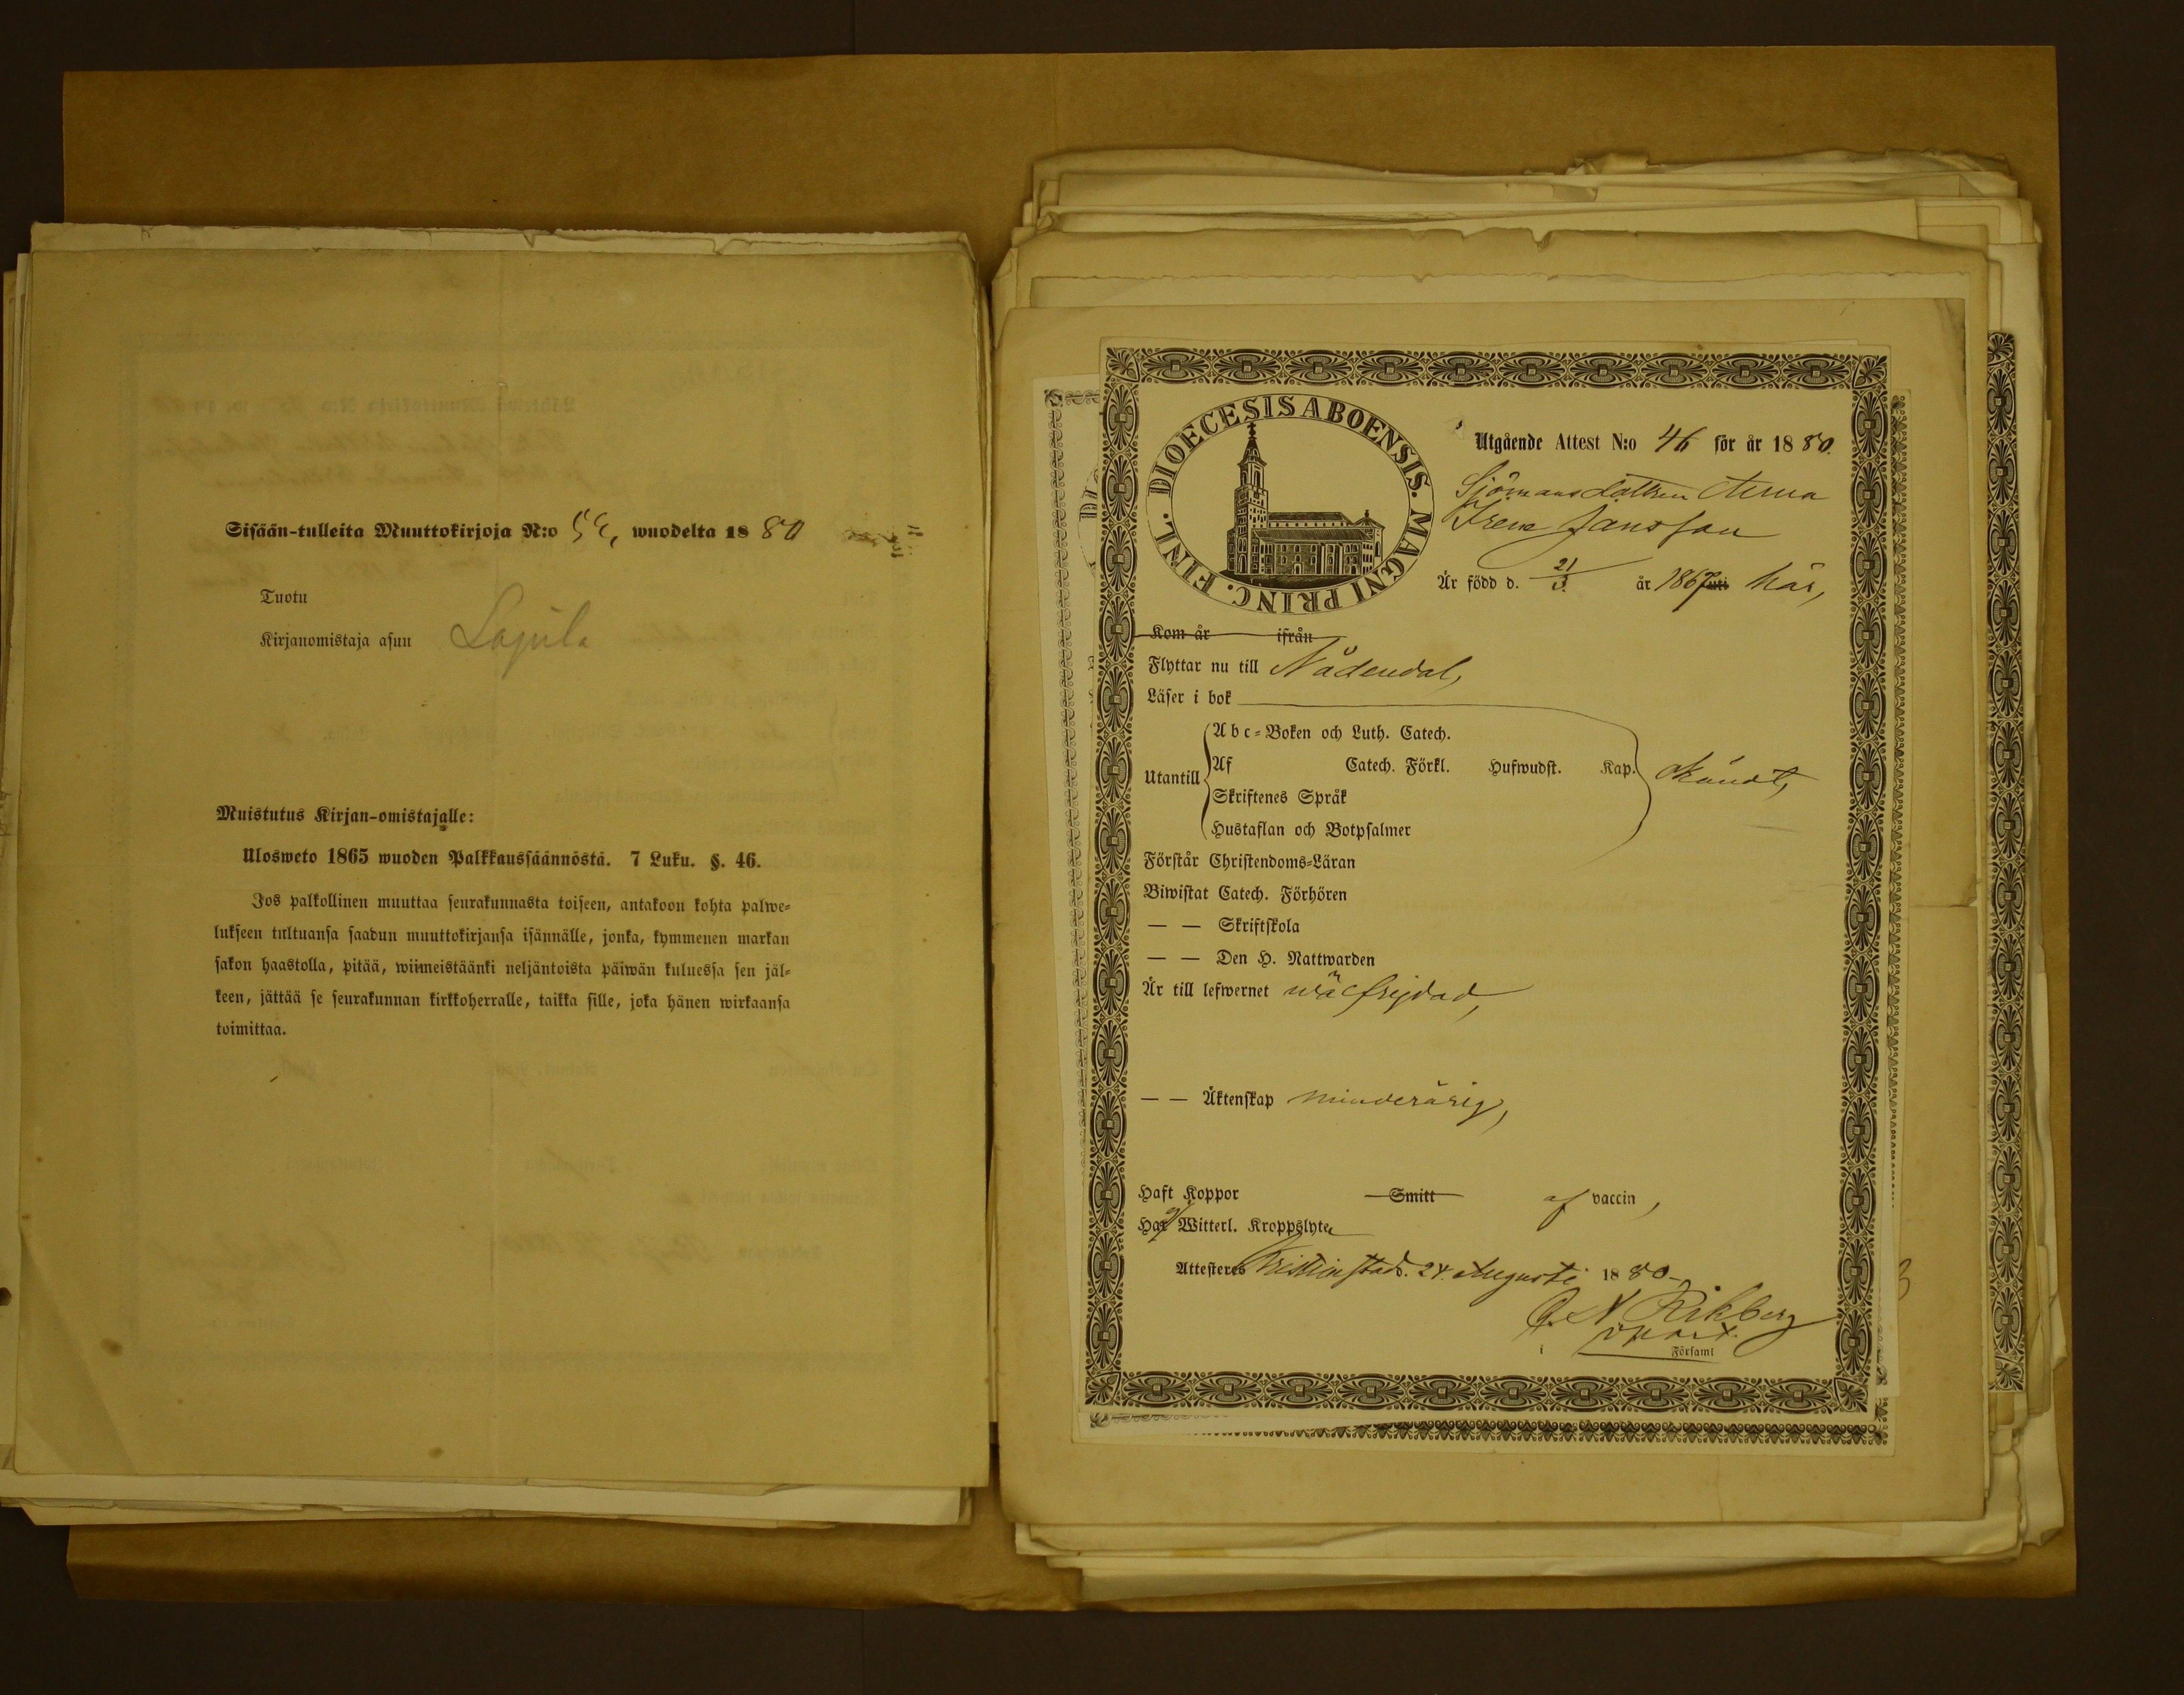 Sisään-tulleita Muuttokirjoja N:o wuodelta 1880
Tuotu
Kirjanomistaja asuu Lapila
Muistutus Kirjan-omistajalle:
Ulosweto 1865 wuoden Palkkaussäännöstä. 7 Luku. §. 46.
Jos palkollinen muuttaa seurakunnasta toiseen, antakoon kohta palwe-
lukseen tultuansa saadun muuttokirjansa isännälle, jonka, kymmenen markan
sakon haastolla, pitää, wiimeistäänki neljäntoista päiwän kuluessa sen jäl-
keen, jättää se seurakunnan kirkkoherralle, taikka sille, joka hänen wirkaansa
toimittaa.
DIOECESIS ABOENSIS. MAGNI PRINC. FINL.
Utgående Attest N:o 46 för år 1880.
Sjömansdottren Anna
Irene Jansson
Är född d. 21/3 år 1867 här,
Kom år ifrån
Flyttar nu till Nådendal,
Läser i bok
Utantill
Abc-Boken och Luth. Catech.
Af Catech. Förkl. Hufwudst. Kap.
Skriftenes Språk
Hustaflan och Botpsalmer
Förstår Christendoms-Läran
Biwistat Catech. Förhören
— — Skriftskola
— — Den H. Nattwarden
Är till lefwernet wälfrejdad,
— — Äktenskap minderårig,
Haft Koppor Smitt af vaccin,
Har Witterl. Kroppslyte
Attesteres Kristinestad. 24. Augusti 1880
Rikberg
i Församl